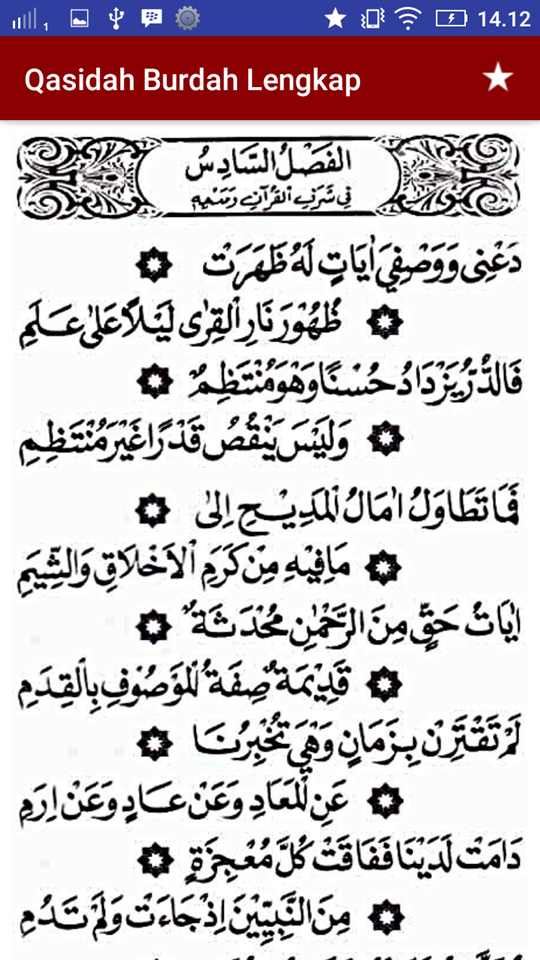 1 14.12
Qasidah Burdah Lengkap
الفَصْلُ السَّادِسُ
فِي شَرَفِ القُرْآنِ وَمَدْحِهِ
دَعْنِى وَوَصْفِيَ اٰيَاتٍ لَهُ ظَهَرَتْ
ظُهُوْرَ نَارِ الْقِرٰى لَيْلًا عَلٰى عَلَمِ
فَالدُّرُّ يَزْدَادُ حُسْنًا وَهْوَ مُنْتَظِمٌ
وَلَيْسَ يَنْقُصُ قَدْرًا غَيْرَ مُنْتَظِمِ
فَمَا تَطَاوَلُ اٰمَالُ الْمَدِيْحِ اِلٰى
مَا فِيْهِ مِنْ كَرَمِ الْاَخْلَاقِ وَالشِّيَمِ
اٰيَاتُ حَقٍّ مِنَ الرَّحْمٰنِ مُحْدَثَةٌ
قَدِيْمَةٌ صِفَةُ الْمَوْصُوْفِ بِالْقِدَمِ
لَمْ تَقْتَرِنْ بِزَمَانٍ وَهْيَ تُخْبِرُنَا
عَنِ الْمَعَادِ وَعَنْ عَادٍ وَعَنْ اِرَمِ
دَامَتْ لَدَيْنَا فَفَاقَتْ كُلَّ مُعْجِزَةٍ
مِنَ النَّبِيِّيْنَ اِذْ جَاءَتْ وَلَمْ تَدُمِ